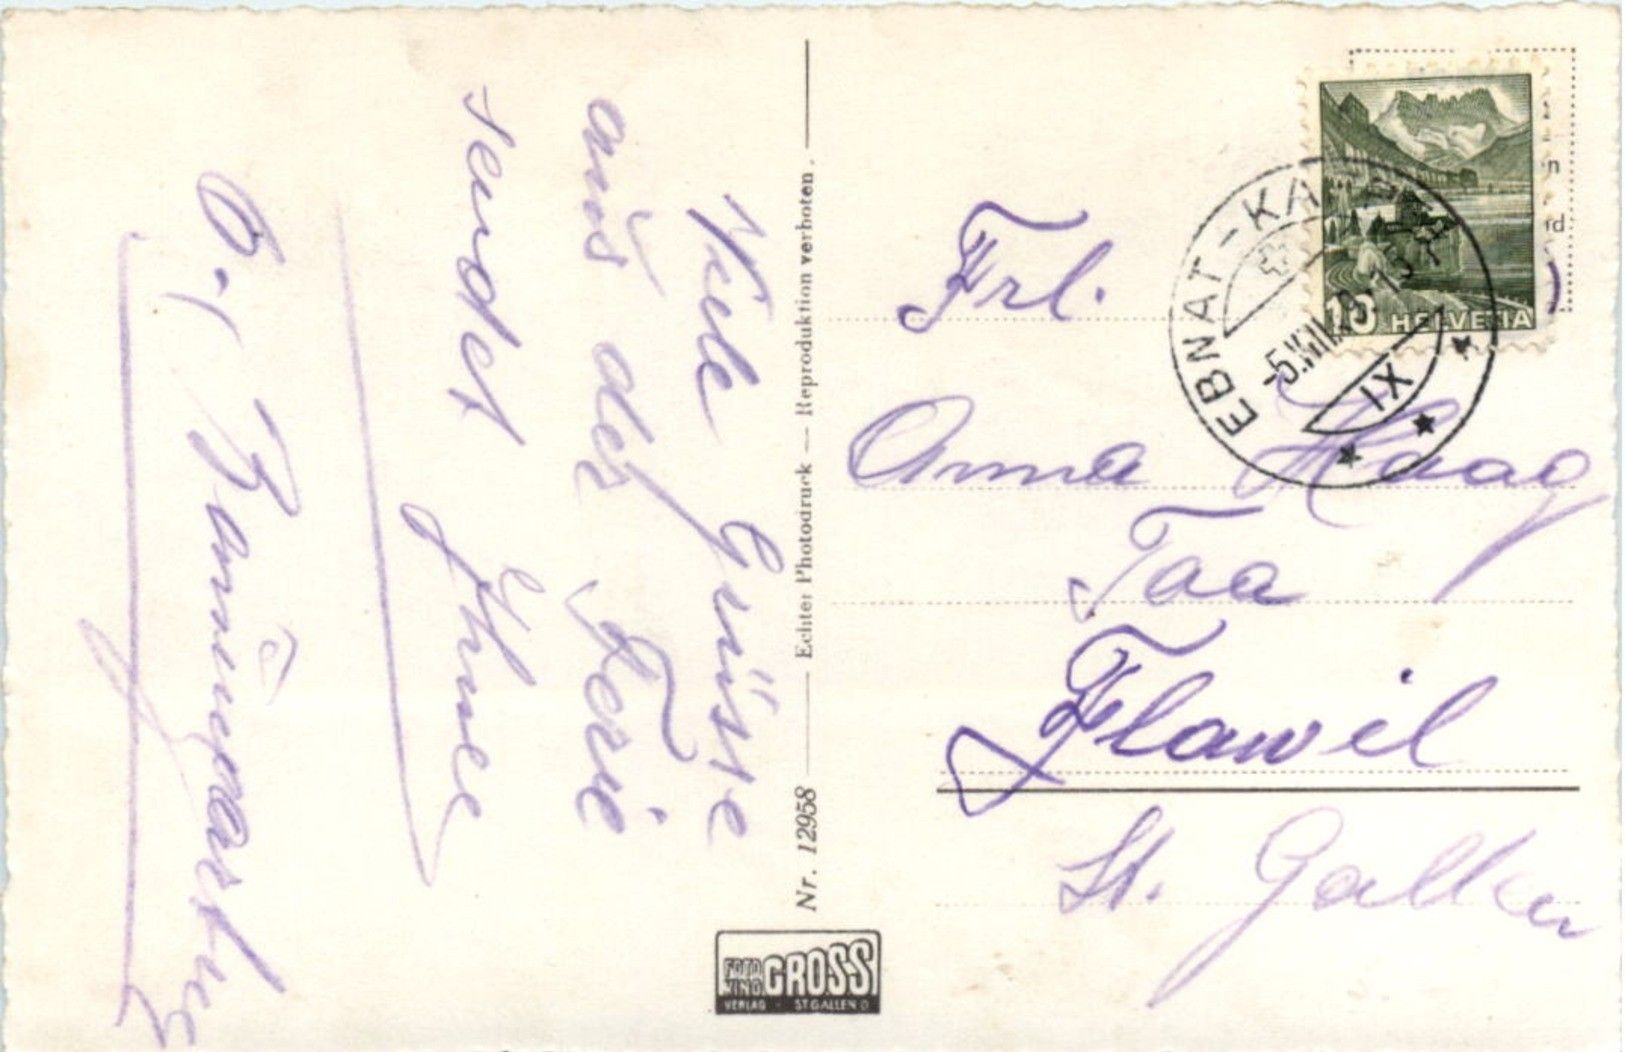 Viele Grüsse
aus der Ferie
sendet Ihnee
Echter Photodruck — Reproduktion verboten.
Nr. 12958
FOTO GROSS
VERLAG · ST. GALLEN O
EBNAT-KAPPEL
-5.VIII
IX
10 HELVETIA
Frl.
Anna Haag
Flawil
St. Gallen